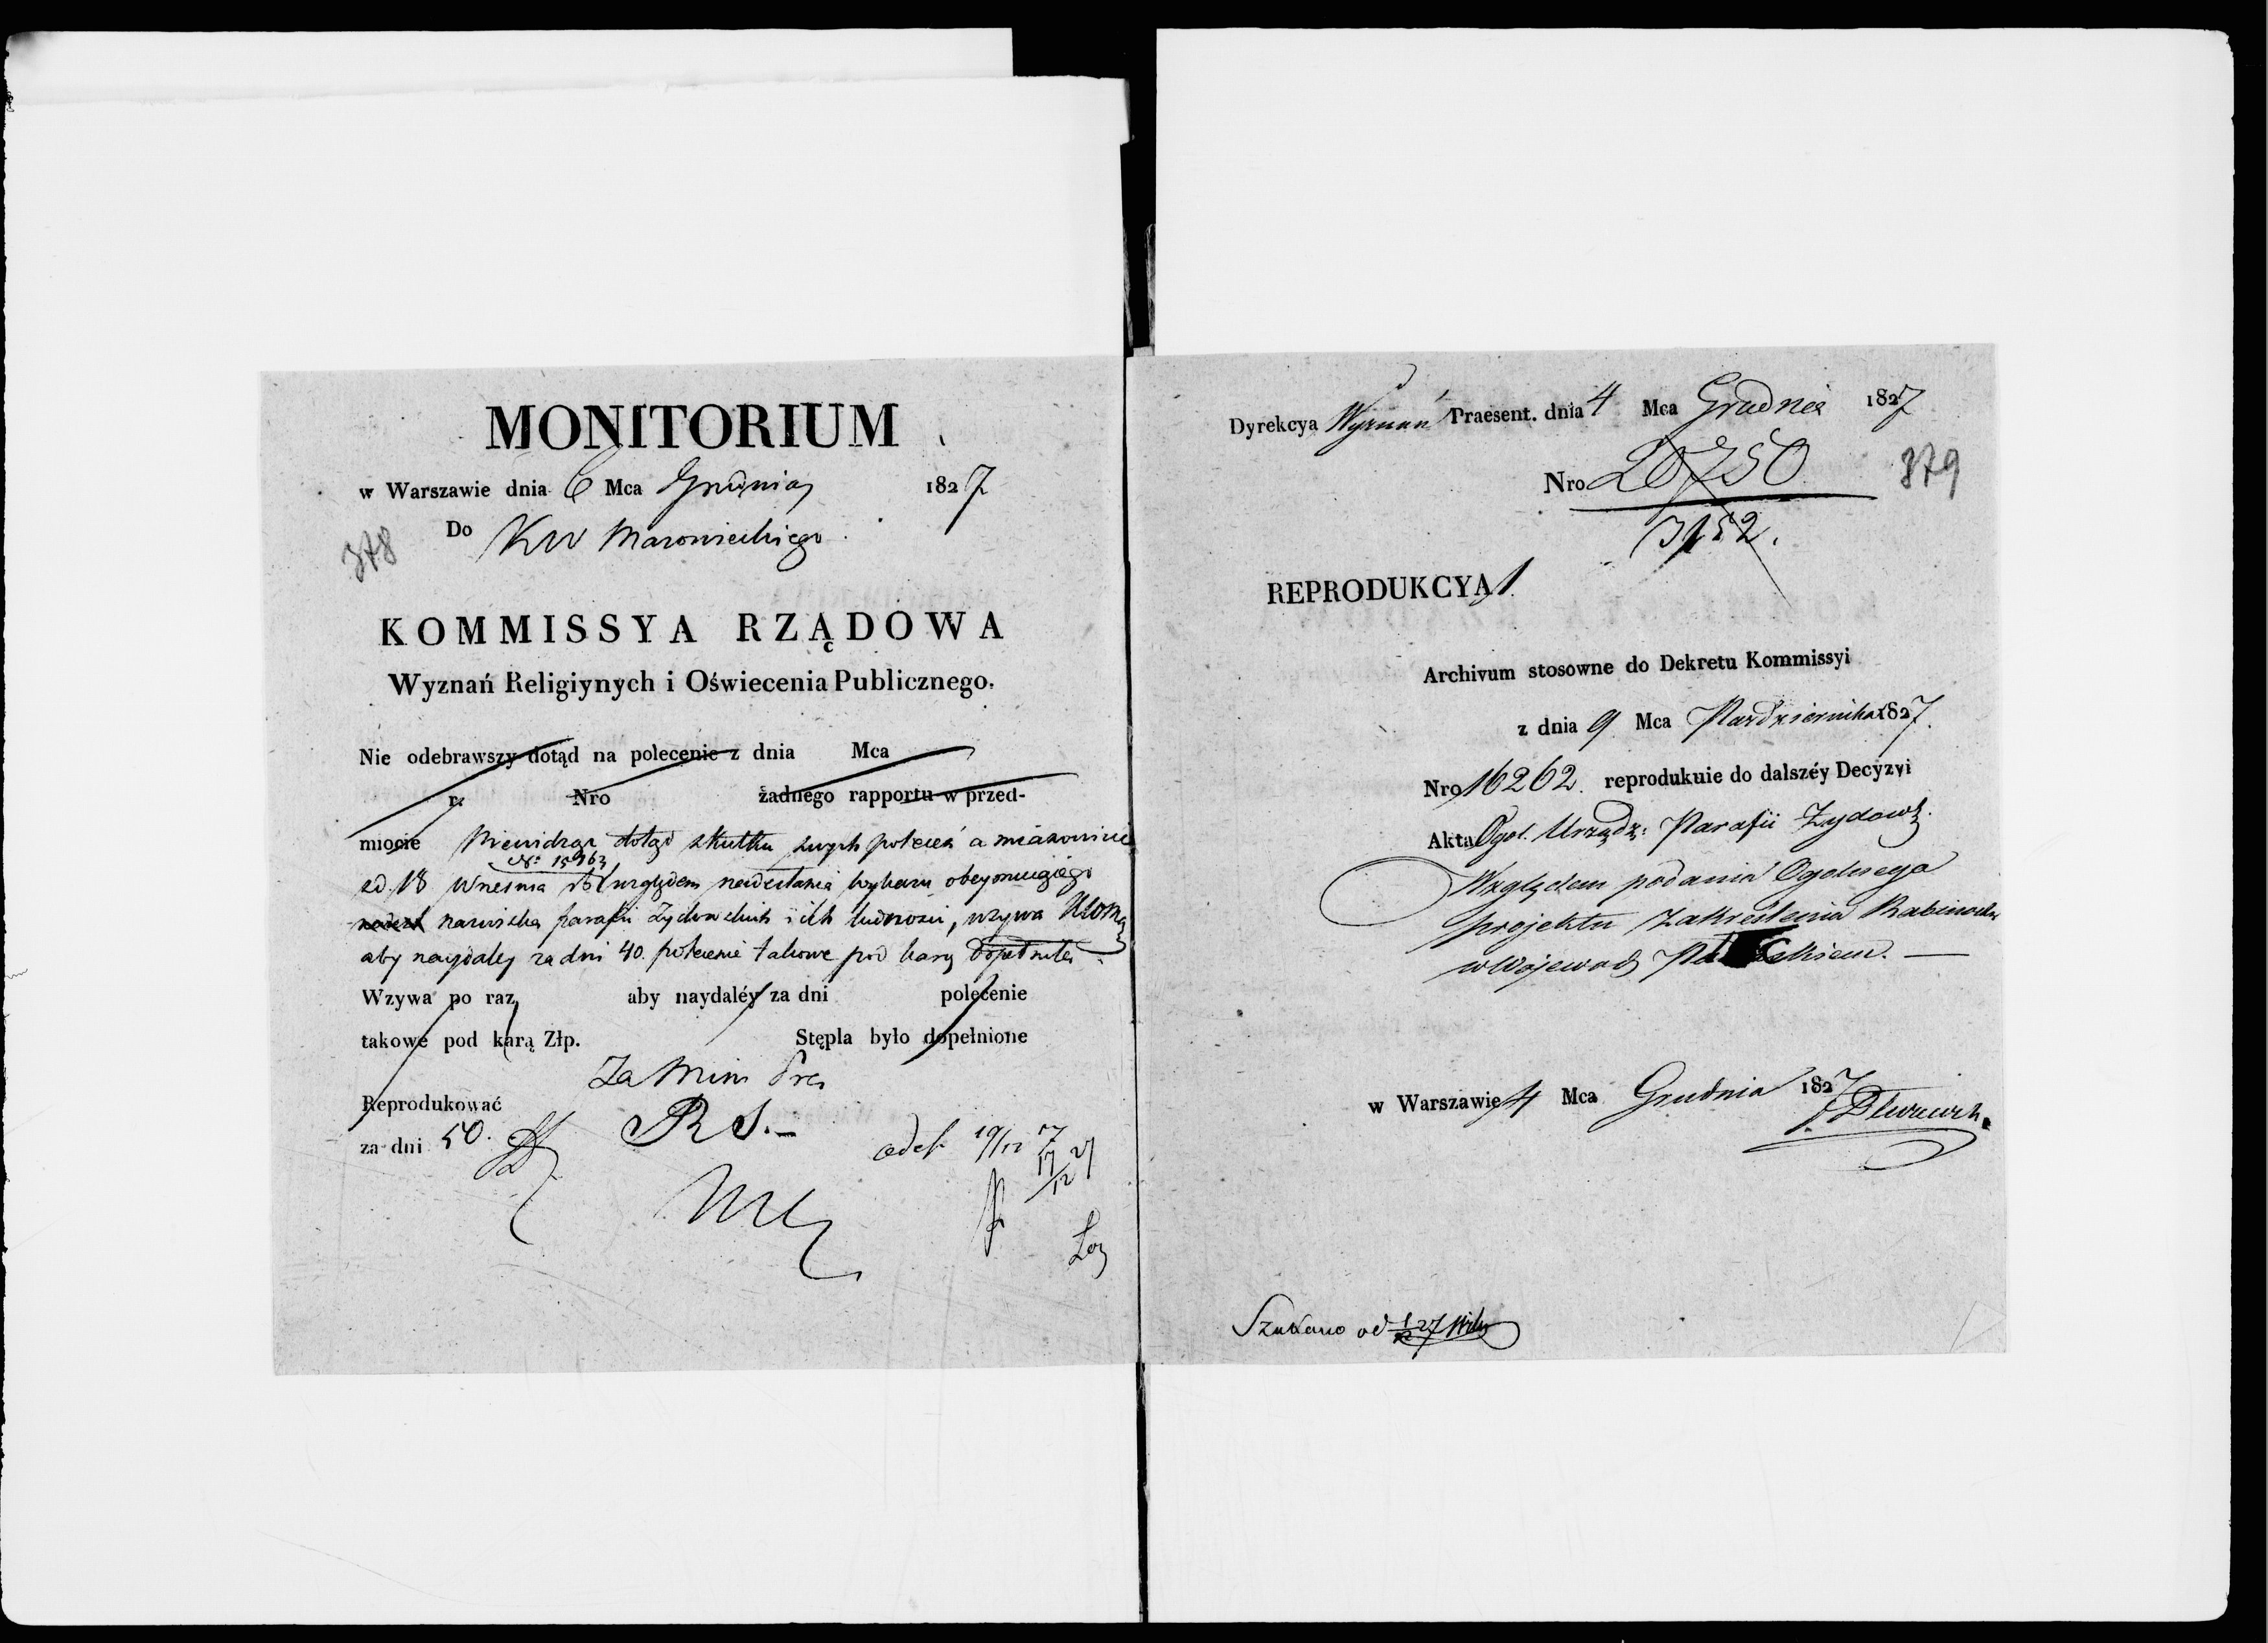 MONITORIUM
w Warszawie dnia 6 Mca Grudnia 1827
Do KW Mazowieckiego
378
KOMMISSYA RZĄDOWA
Wyznań Religiynych i Oświecenia Publicznego.
Nie odebrawszy dotąd na polecenie z dnia Mca
r. Nro żadnego rapportu w przed-
miocie Niewidząc dotąd skutku swych poleceń a mianowicie
No 15963
z d. 18 Września rb względem nadesłania wykazu obeymuiącego
nazwiska parafii Żydowskich i ich ludności, wzywa KWMaz
aby naydaley za dni 40. polecenie takowe pod karą dopełniła
Wzywa po raz aby naydaléy za dni polecenie
takowe pod karą Złp. Stępla było dopełnione
Za Mini Prez
Reprodukować
za dni 50. R S.
odeb 19/12
17/12 27
Dyrekcya Wyznań Praesent. dnia 4 Mca Grudnia 1827
Nro 20750
3152.
379
REPRODUKCYA 1
Archivum stosowne do Dekretu Kommissyi
z dnia 9 Mca Pazdziernika 1827.
Nro 16262. reprodukuie do dalszéy Decyzyi
Akta Ogol. Urządz: Parafii Zydows.
Względem podania Ogolnego
projektu zakreslenia Rabinostw
w Wojewod
w Warszawie 4 Mca Grudnia 1827
Szukano od